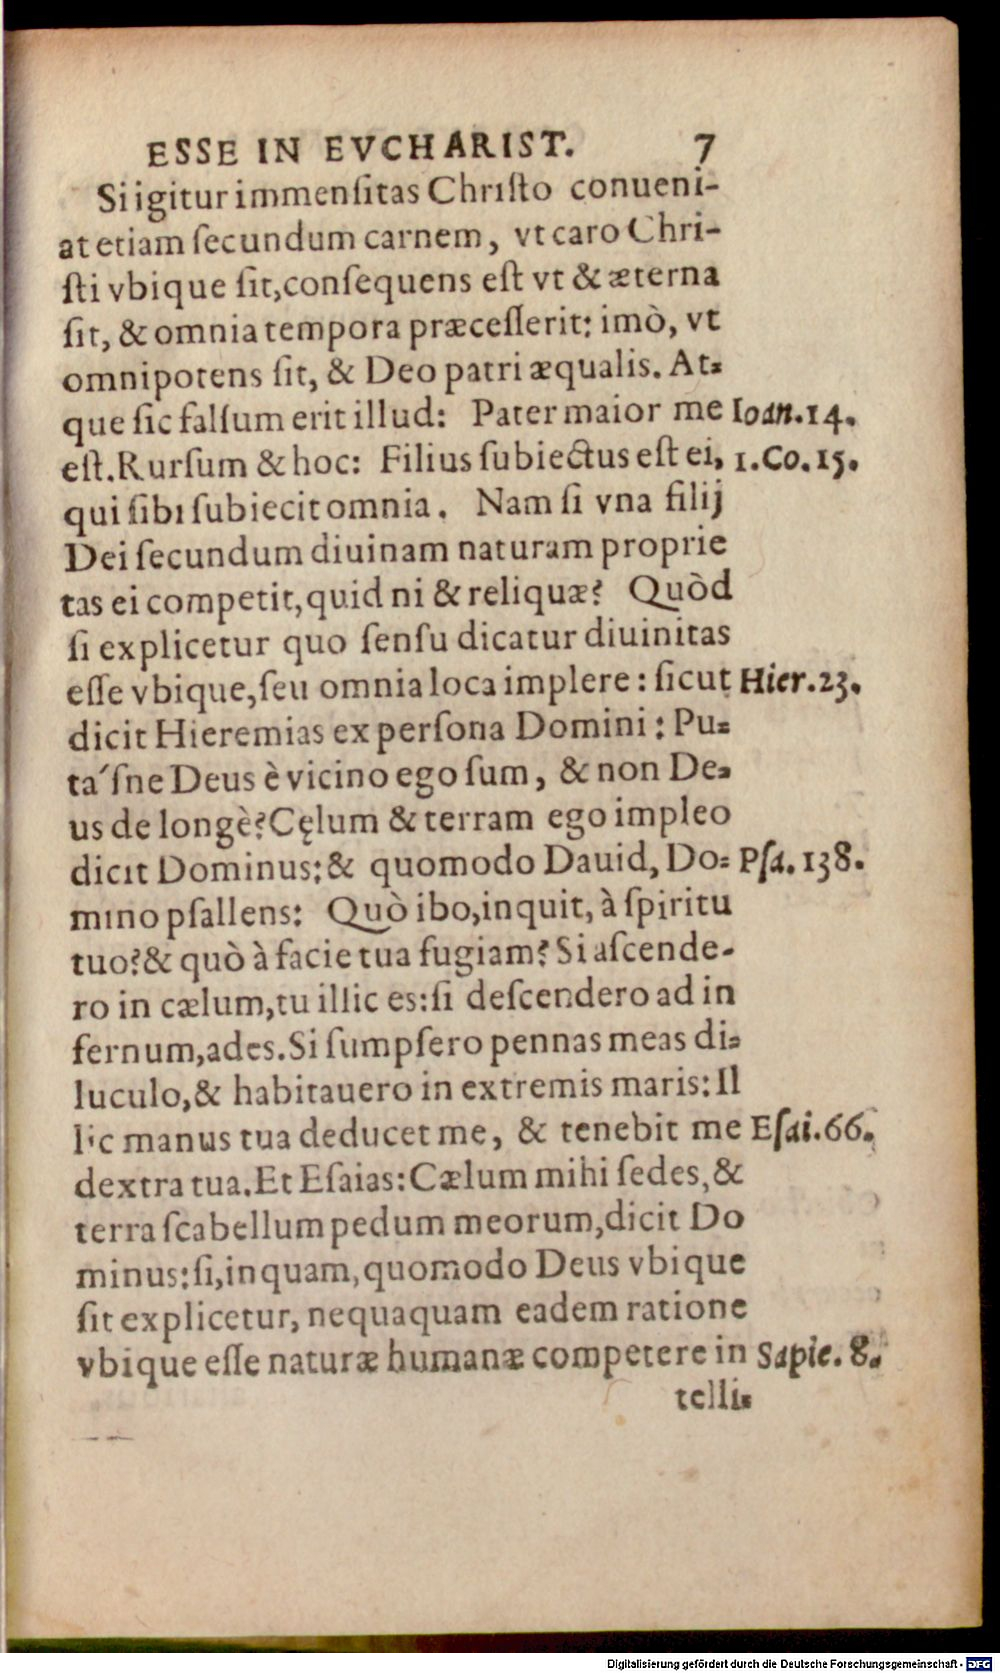 ESSE IN EVCHARIST. 7
Si igitur immenſitas Chriſto conueni-
at etiam ſecundum carnem, vt caro Chri-
ſti vbique ſit, conſequens eſt vt & æterna
ſit, & omnia tempora præceſſerit: imò, vt
omnipotens ſit, & Deo patri æqualis. At-
que ſic falſum erit illud: Pater maior me Ioan.14.
eſt. Rurſum & hoc: Filius ſubiectus eſt ei, 1.Co.15.
qui ſibi ſubiecit omnia. Nam ſi vna filij
Dei ſecundum diuinam naturam proprie
tas ei competit, quid ni & reliquæ? Quòd
ſi explicetur quo ſenſu dicatur diuinitas
eſſe vbique, ſeu omnia loca implere: ſicut Hier.23.
dicit Hieremias ex perſona Domini: Pu-
ta´ſne Deus è vicino ego ſum, & non De-
us de longè? Cęlum & terram ego impleo
dicit Dominus: & quomodo Dauid, Do- Pſa.138.
mino pſallens: Quò ibo, inquit, à ſpiritu
tuo? & quò à facie tua fugiam? Si aſcende-
ro in cælum, tu illic es: ſi deſcendero ad in
fernum, ades. Si ſumpſero pennas meas di-
luculo, & habitauero in extremis maris: Il
lic manus tua deducet me, & tenebit me Eſai.66.
dextra tua. Et Eſaias: Cælum mihi ſedes, &
terra ſcabellum pedum meorum, dicit Do
minus: ſi, inquam, quomodo Deus vbique
ſit explicetur, nequaquam eadem ratione
vbique eſſe naturæ humanæ competere in Sapie.8.
telli-
Digitalisierung gefördert durch die Deutsche Forschungsgemeinschaft - DFG